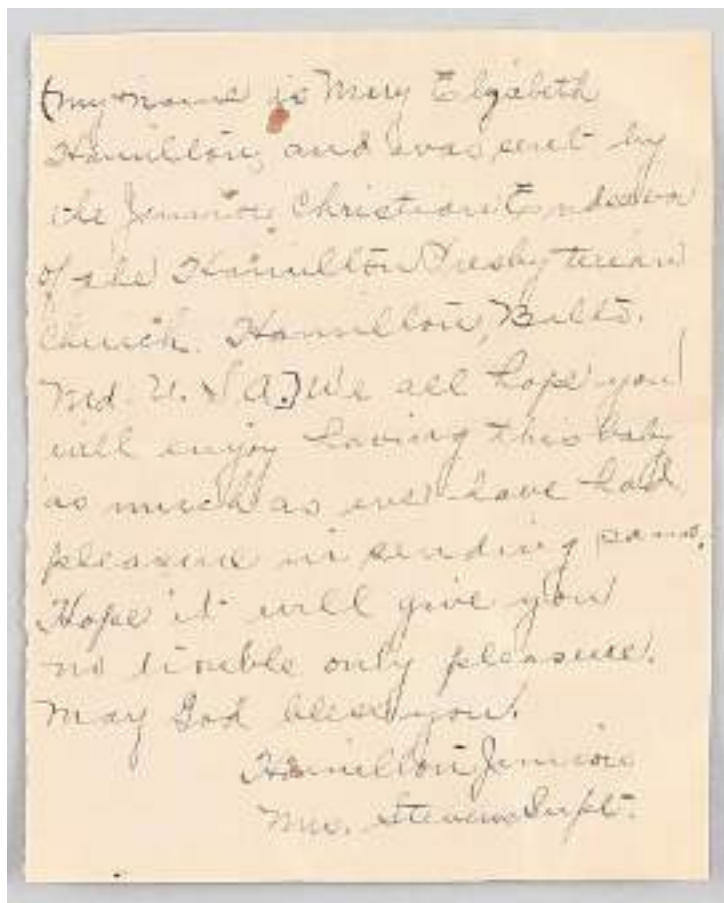 (my name is Mary Elizabeth
Hamilton, and was sent by
the Junior Christian Endeavor
of the Hamilton Presbyterian
Church. Hamilton, Balto.
Md. U. S A.] We all hope you
will enjoy having this baby
as much as we have had
pleasure in sending same.
Hope it will give you
no trouble only pleasure.
May God bless you.
Hamilton Juniors
Mrs. Stevens Supt.